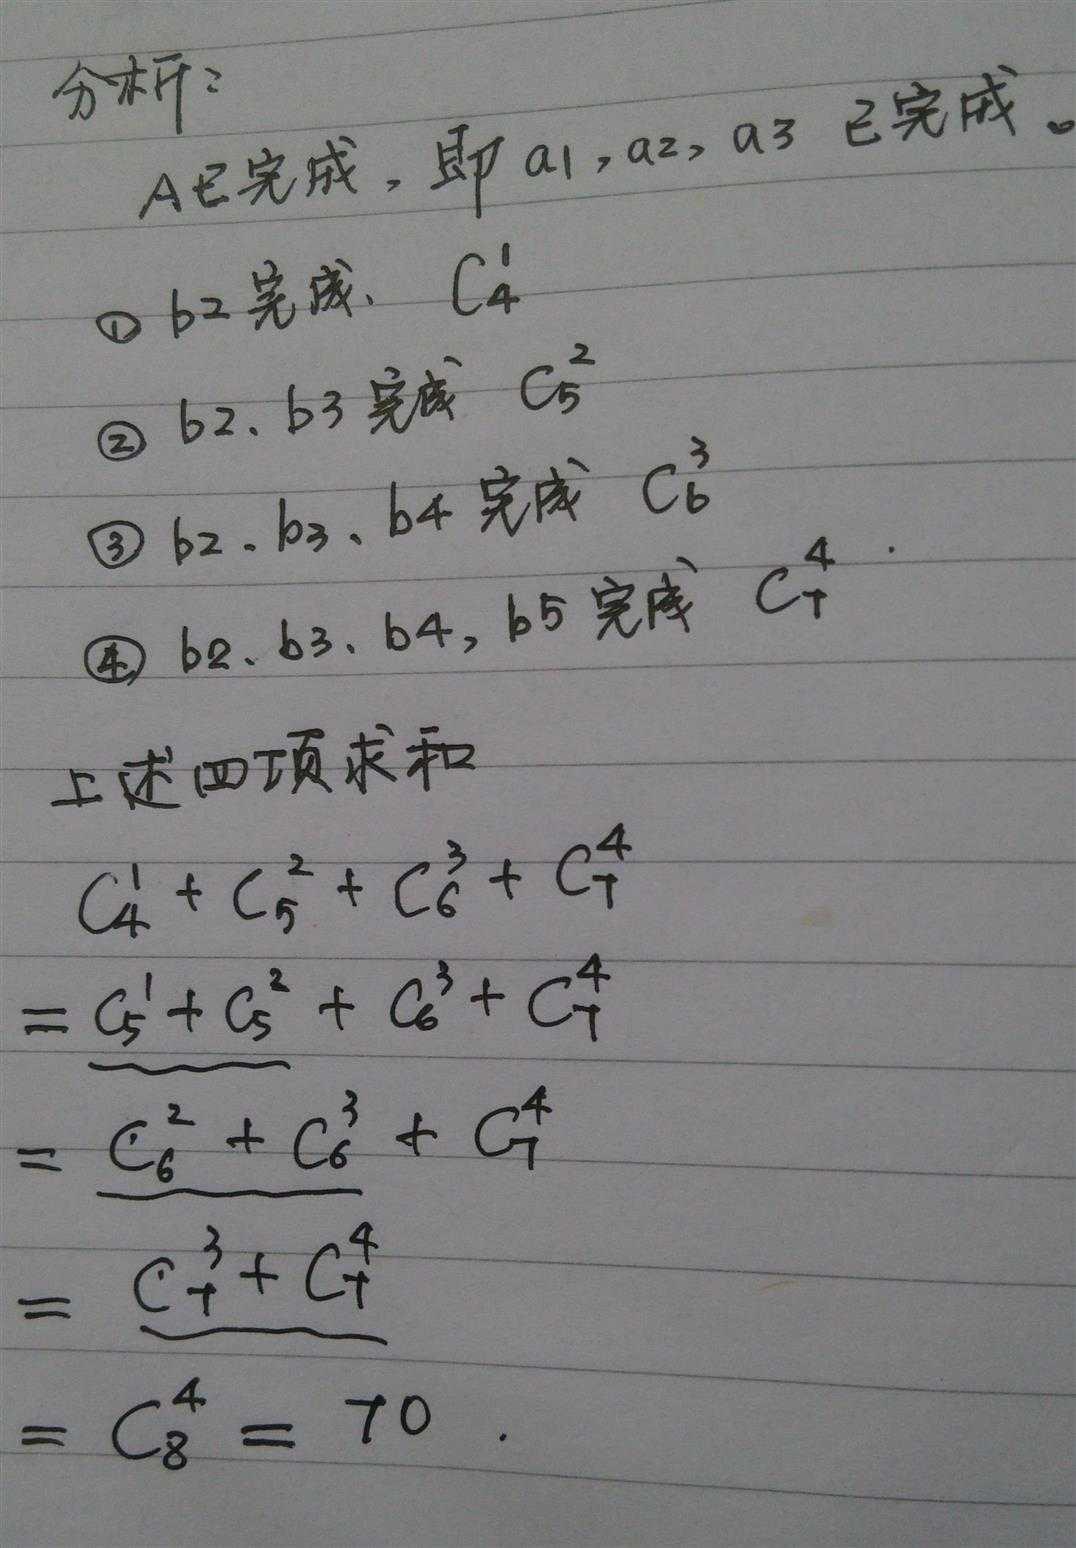 分析：
A已完成，即 a1，a2，a3 已完成。
① b2完成、 C₄¹
② b2、b3完成 C₅²
③ b2、b3、b4 完成 C₆³
④ b2、b3、b4，b5 完成 C₇⁴
上述四项求和
C₄¹ + C₅² + C₆³ + C₇⁴
= C₅¹ + C₅² + C₆³ + C₇⁴
= C₆² + C₆³ + C₇⁴
= C₇³ + C₇⁴
= C₈⁴ = 70 .